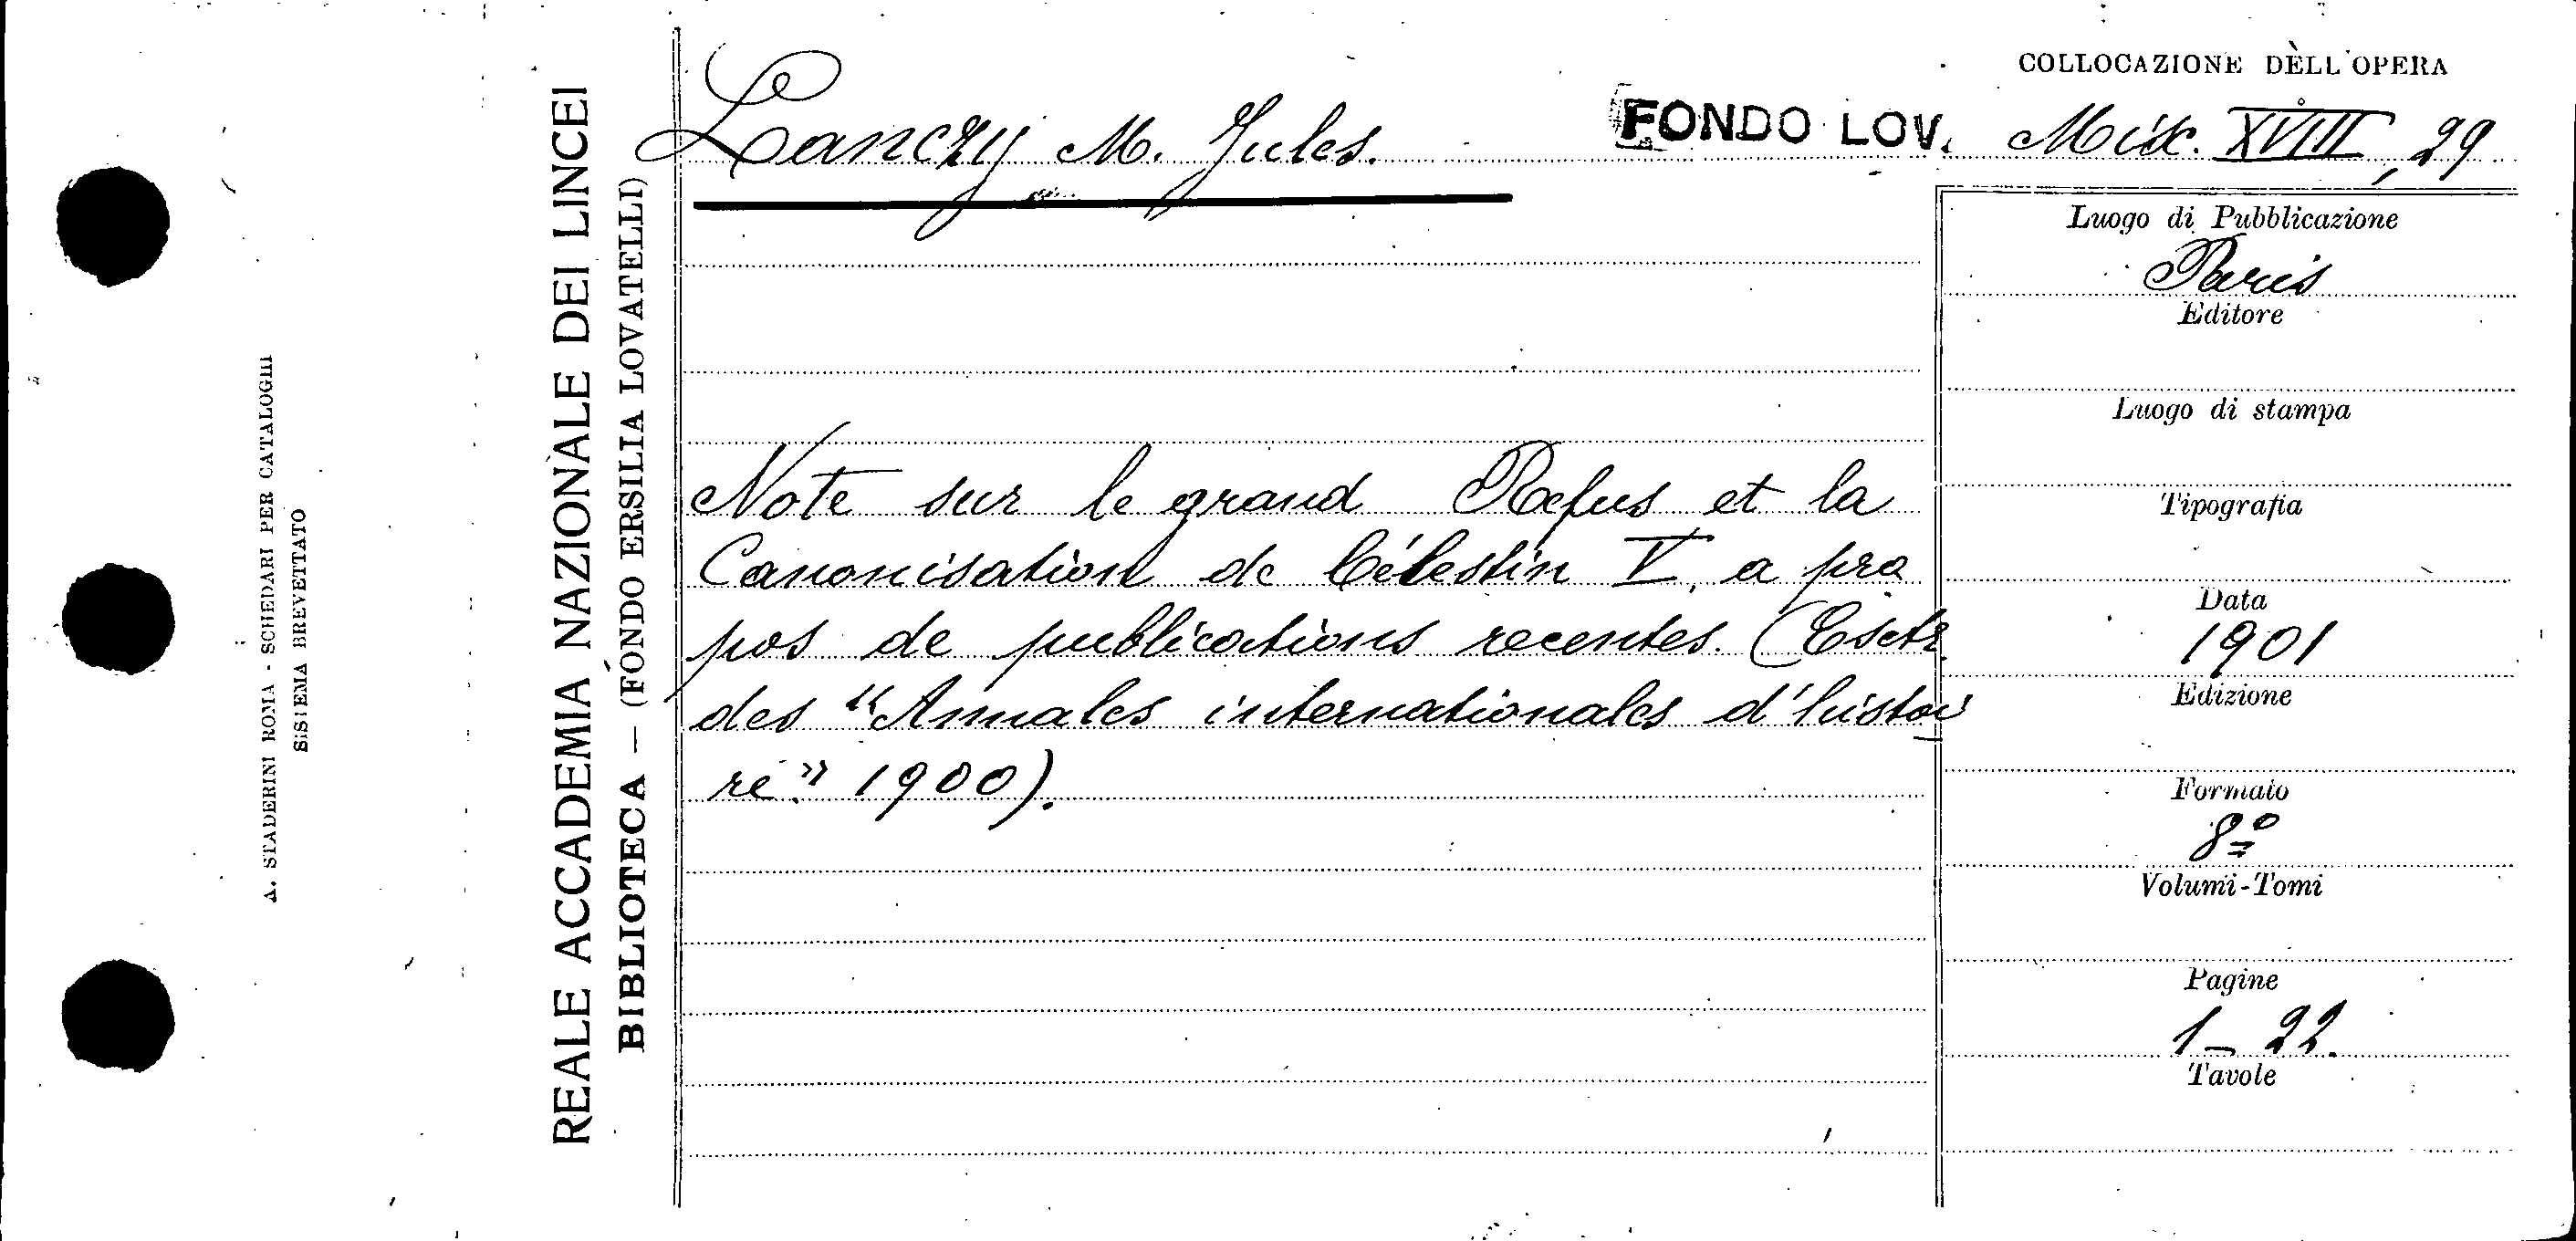 A. STADERINI ROMA - SCHEDARI PER CATALOGHI
SISTEMA BREVETTATO
REALE ACCADEMIA NAZIONALE DEI LINCEI
BIBLIOTECA — (FONDO ERSILIA LOVATELLI)
Lanczy M. Jules.
FONDO LOV.
COLLOCAZIONE DELL'OPERA
Misc. XVIII, 29
Note sur le grand Refus et la
Canonisation de Célestin V, a pro
pos de publications recentes. (Esctr.
des "Annales internationales d'histoi
re" 1900).
Luogo di Pubblicazione
Paris
Editore
Luogo di stampa
Tipografia
Data
1901
Edizione
Formato
8º
Volumi-Tomi
Pagine
1 - 22.
Tavole